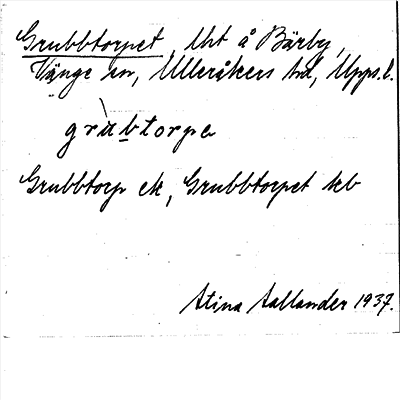 Grubbtorpet, lht å Bärby,
Vänge sn, Ulleråkers hd, Upps. l.
gràbtorpe
Grubbtorp ek, Grubbtorpet kb
Stina Aallander 1937.